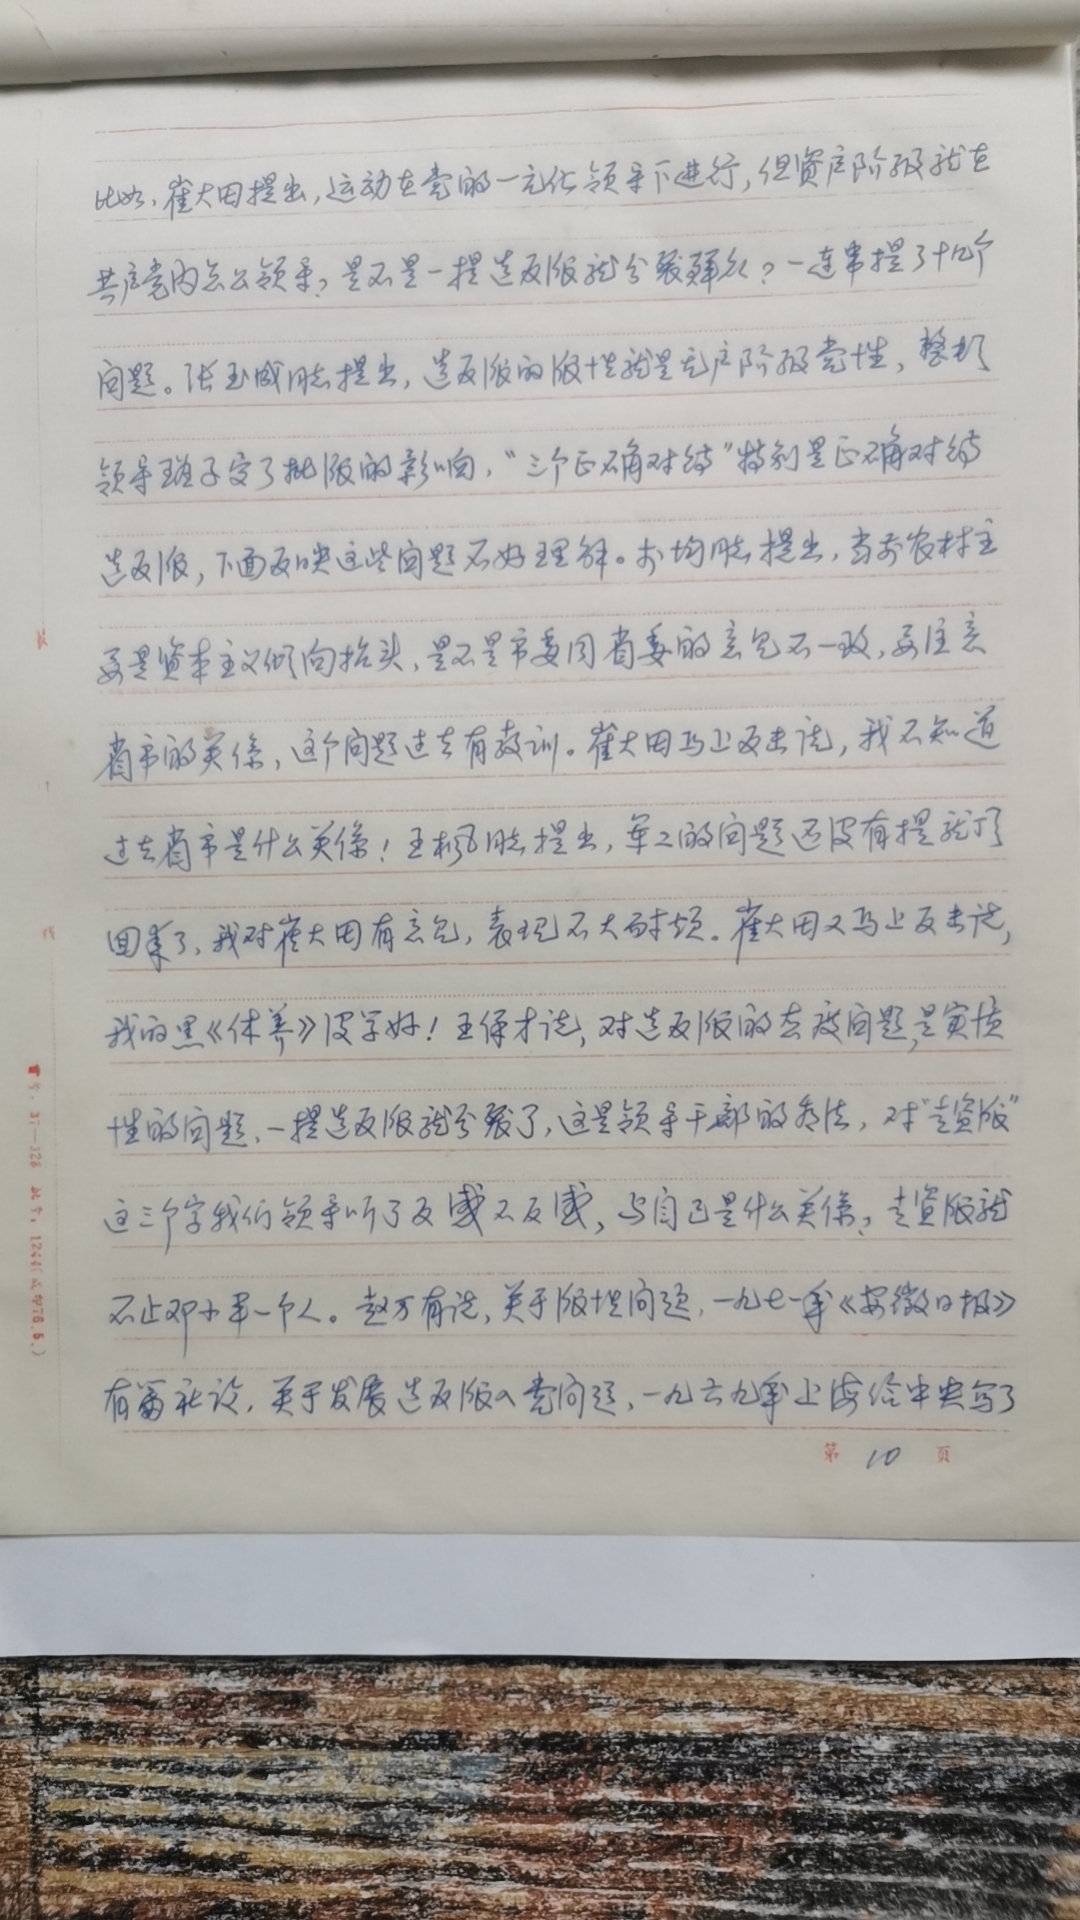 比如，崔大田提出，运动在党的一元化领导下进行，但资产阶级就在
共产党内怎么领导？是不是一提造反派就分裂群众？一连串提了十几个
问题。张玉成同志提出，造反派的派性就是无产阶级党性，整打
领导班子受了批派的影响，“三个正确对待”特别是正确对待
造反派，下面反映这些问题不好理解。 均同志提出，当前农村主
要是资本主义倾向抬头，是不是市委同省委的意见不一致，要注意
省市的关係，这个问题过去有教训。崔大田马上反击说，我不知道
过去省市是什么关係！王枫同志提出，军工的问题还没有提就顶
回来了，我对崔大田有意见，表现不大耐烦。崔大田又马上反击说，
我的黑《休养》没学好！王保才说，对造反派的态度问题，是实质
性的问题，一提造反派就分裂了，这是领导干部的看法，对“走资派”
这三个字我们领导听了反感不反感，与自己是什么关係？走资派就
不止邓小平一个人。赵万有说，关于派性问题，一九七一年《安徽日报》
有篇社论，关于发展造反派入党问题，一九六九年上海给中央写了
第 10 页